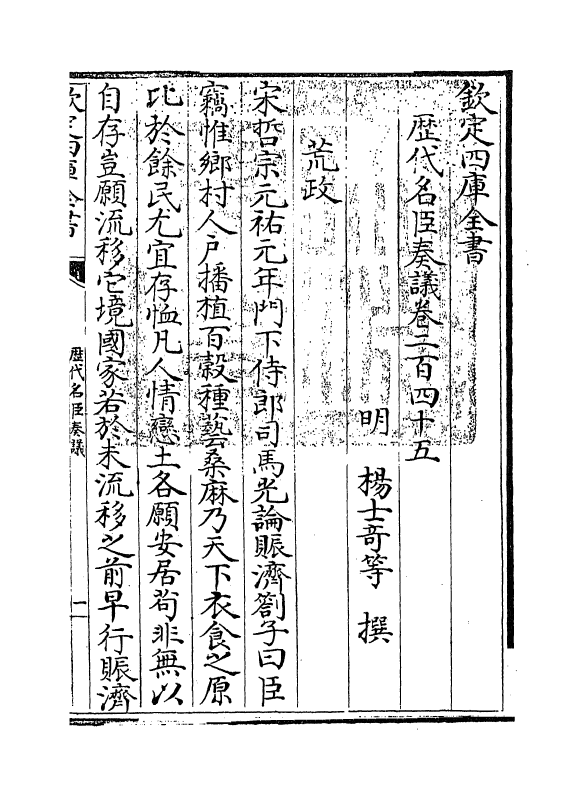 欽定四庫全書
歴代名臣奏議卷二百四十五
明 楊士奇等 撰
荒政
宋哲宗元祐元年門下侍郎司馬光論賑濟劄子曰臣
竊惟鄉村人户播植百穀種藝桑麻乃天下衣食之原
比於餘民尤宜存恤凡人情戀土各願安居茍非無以
自存豈願流移它境國家若於未流移之前早行賑濟
欽定四庫全書
歴代名臣奏議